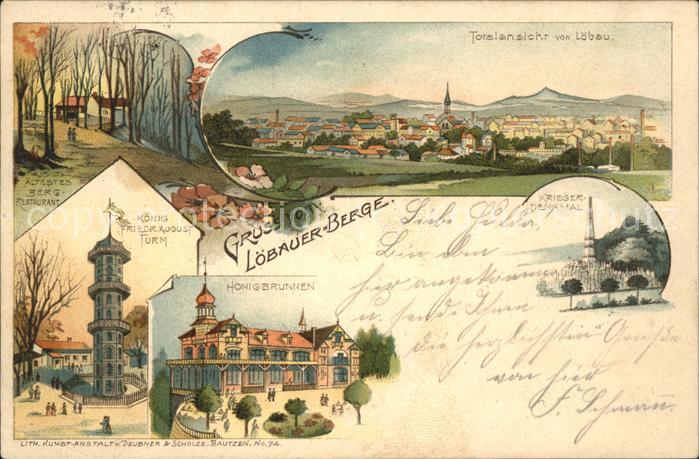 Totalansicht von Löbau.
ÄLTESTES
BERG-
RESTAURANT
KÖNIG
FRIEDR. AUGUST
TURM
GRUSS
LÖBAUER-BERGE.
HONIGBRUNNEN
KRIEGER-
DENKMAL
Liebe Hulda,
Bin
hier angekommen
u. sende Ihnen
die herzlichsten Grüsse
von hier
LITH. KUNST-ANSTALT v. DEUBNER & SCHOLZE. BAUTZEN. No. 74.